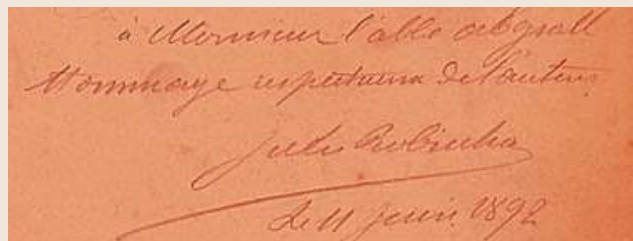 à Monsieur l'abbé abgrall
Hommage respectueux de l'auteur
Jules Robuchon
Le 11 juin 1892